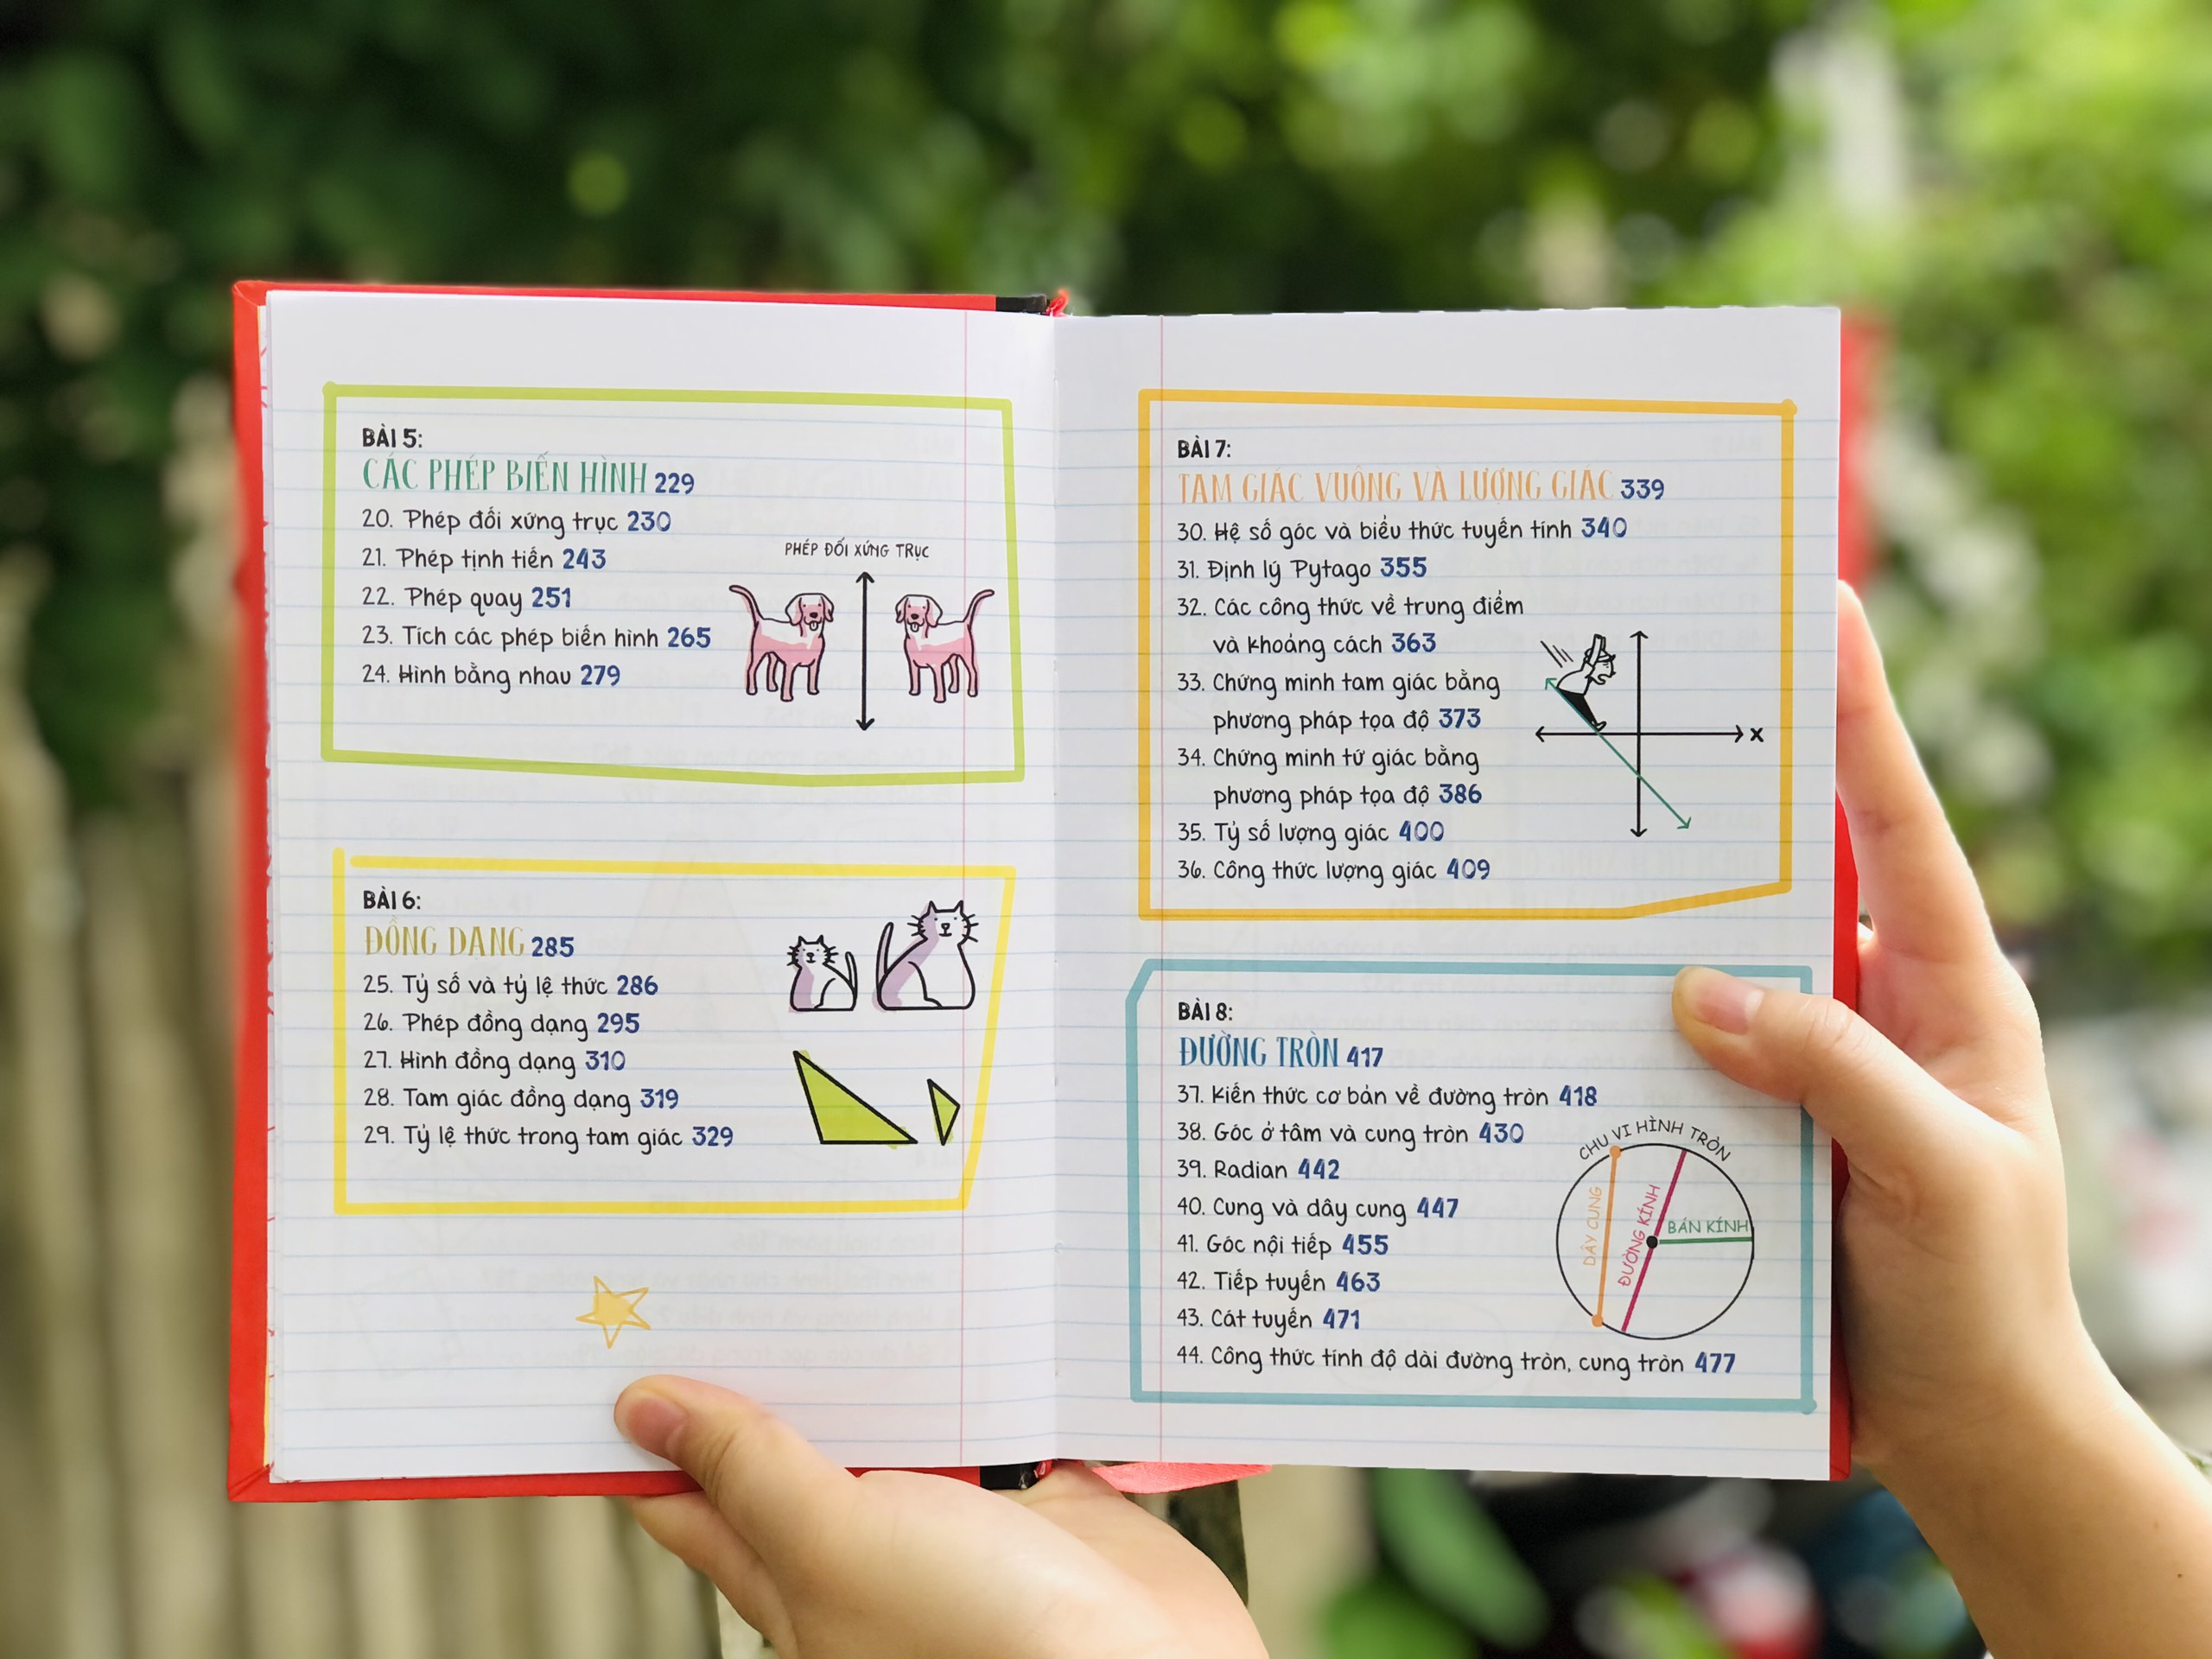 BÀI 5:
CÁC PHÉP BIẾN HÌNH 229
20. Phép đối xứng trục 230
21. Phép tịnh tiến 243
22. Phép quay 251
23. Tích các phép biến hình 265
24. Hình bằng nhau 279
PHÉP ĐỐI XỨNG TRỤC
BÀI 6:
ĐỒNG DẠNG 285
25. Tỷ số và tỷ lệ thức 286
26. Phép đồng dạng 295
27. Hình đồng dạng 310
28. Tam giác đồng dạng 319
29. Tỷ lệ thức trong tam giác 329
BÀI 7:
TAM GIÁC VUÔNG VÀ LƯỢNG GIÁC 339
30. Hệ số góc và biểu thức tuyến tính 340
31. Định lý Pytago 355
32. Các công thức về trung điểm
và khoảng cách 363
33. Chứng minh tam giác bằng
phương pháp tọa độ 373
34. Chứng minh tứ giác bằng
phương pháp tọa độ 386
35. Tỷ số lượng giác 400
36. Công thức lượng giác 409
x
BÀI 8:
ĐƯỜNG TRÒN 417
37. Kiến thức cơ bản về đường tròn 418
38. Góc ở tâm và cung tròn 430
39. Radian 442
40. Cung và dây cung 447
41. Góc nội tiếp 455
42. Tiếp tuyến 463
43. Cát tuyến 471
44. Công thức tính độ dài đường tròn, cung tròn 477
CHU VI HÌNH TRÒN
DÂY CUNG
ĐƯỜNG KÍNH
BÁN KÍNH